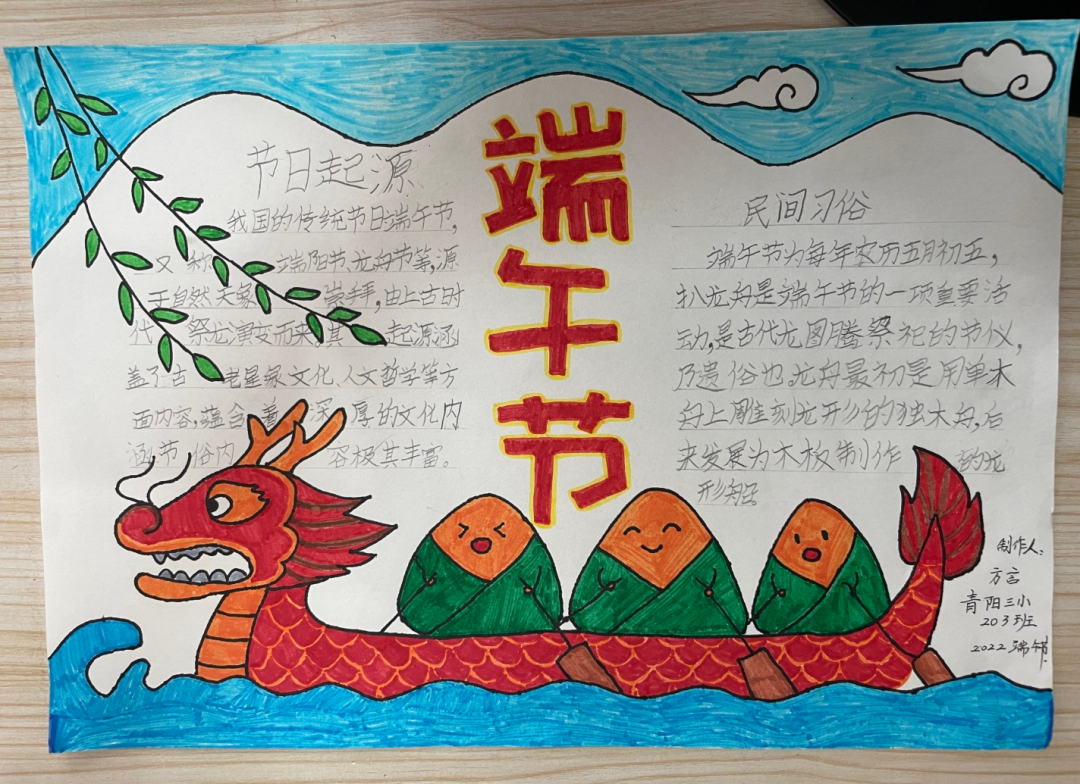 节日起源
我国的传统节日端午节,
又称 端阳节、龙舟节等,源
于自然天象 崇拜,由上古时
代 祭龙演变而来,其 起源涵
盖了古 老星象文化、人文哲学等方
面内容,蕴含着深厚的文化内
涵,节俗内 容极其丰富。
端午节
民间习俗
端午节为每年农历五月初五,
扒龙舟是端午节的一项重要活
动,是古代龙图腾祭祀的节仪,
乃遗俗也。龙舟最初是用单木
舟上雕刻龙形的独木舟,后
来发展为木板制作 的龙
形船。
制作人:
方言
青阳三小
203班
2022端午节